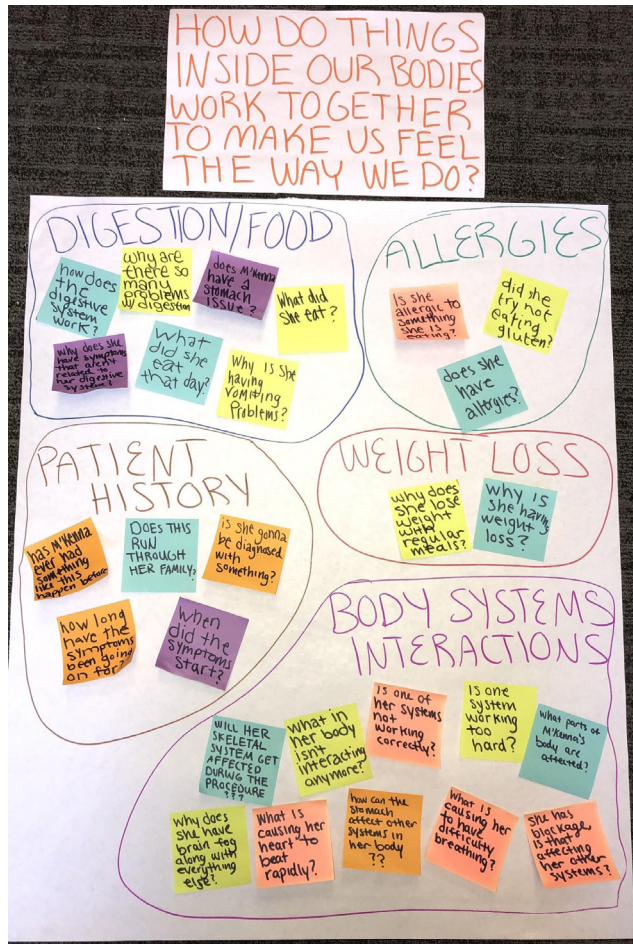 HOW DO THINGS
INSIDE OUR BODIES
WORK TOGETHER
TO MAKE US FEEL
THE WAY WE DO?
DIGESTION/FOOD
how does
the
digestive
system
work?
why are
there so
many
problems
w/ digestion
does M'Kenna
have a
stomach
issue?
What did
she eat?
why does she
have symptoms
that aren't
related to
her digestive
system?
What
did she
eat
that day?
Why is she
having
vomiting
Problems?
ALLERGIES
Is she
allergic to
something
she is
eating?
did she
try not
eating
gluten?
does she
have
allergies?
PATIENT
HISTORY
has M'Kenna
ever had
something
like this
happen before
DOES THIS
RUN
THROUGH
HER FAMILY?
is she gonna
be diagnosed
with
something?
how long
have the
symptoms
been going
on for?
when
did the
symptoms
start?
WEIGHT LOSS
why does
she lose
weight
with
regular
meals?
why is
she having
weight
loss?
BODY SYSTEMS
INTERACTIONS
WILL HER
SKELETAL
SYSTEM GET
AFFECTED
DURING THE
PROCEDURE
???
what in
her body
isn't
interacting
anymore?
Is one of
her systems
not
working
correctly?
Is one
system
working
too
hard?
what parts of
M'Kenna's
body are
affected?
why does
she have
brain fog
along with
everything
else?
What is
causing her
heart to
beat
rapidly?
how can the
stomach
affect other
systems in
her body
??
What is
causing her
to have
difficulty
breathing?
she has
blockage
is that
affecting
her other
systems?